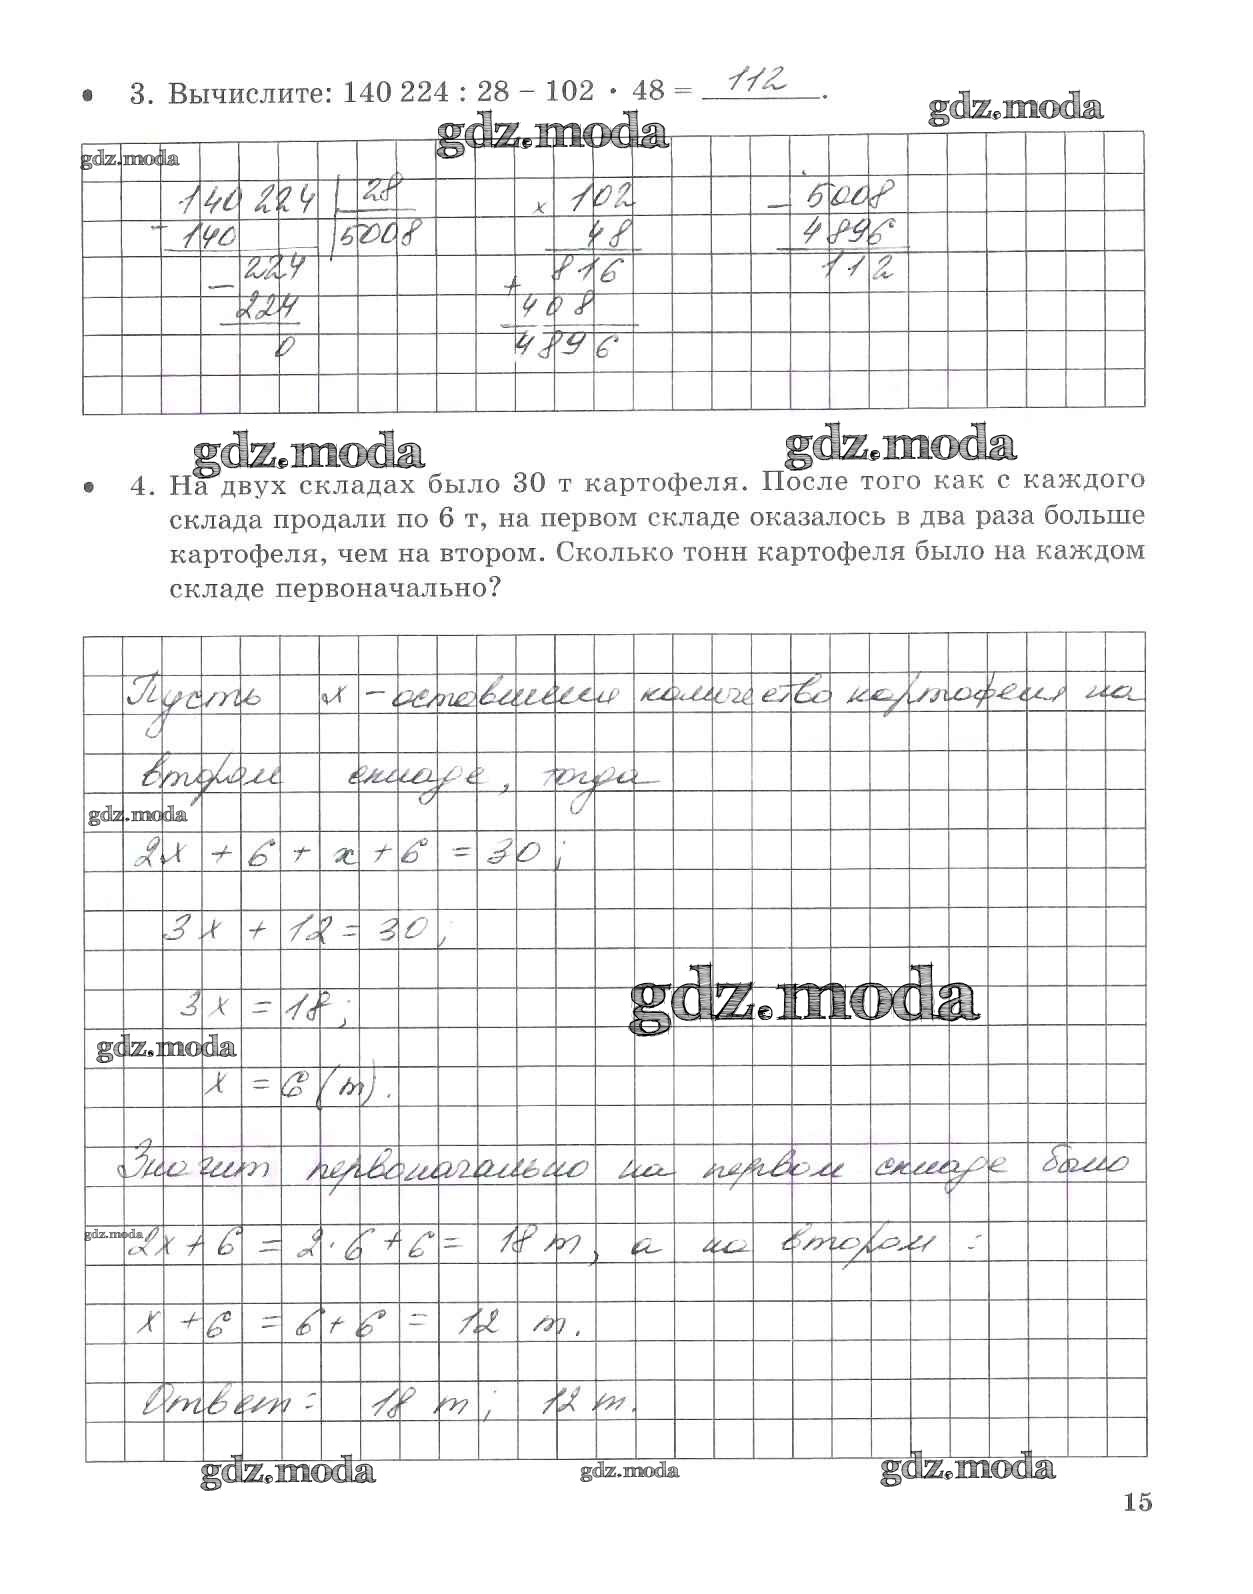 • 3. Вычислите: 140 224 : 28 – 102 · 48 = 112.
gdz.moda
gdz.moda
gdz.moda
– 140 224 | 28 × 102 – 5008
140 5008 48 4896
– 224 + 816 112
224 408
0 4896
gdz.moda gdz.moda
• 4. На двух складах было 30 т картофеля. После того как с каждого
склада продали по 6 т, на первом складе оказалось в два раза больше
картофеля, чем на втором. Сколько тонн картофеля было на каждом
складе первоначально?
Пусть x – оставшееся количество картофеля на
втором складе, тогда
gdz.moda
2x + 6 + x + 6 = 30;
3x + 12 = 30;
gdz.moda
3x = 18;
gdz.moda
x = 6 (т).
Значит первоначально на первом складе было
gdz.moda
2x + 6 = 2·6 + 6 = 18 т, а на втором :
x + 6 = 6 + 6 = 12 т.
Ответ: 18 т; 12 т.
gdz.moda gdz.moda gdz.moda
15